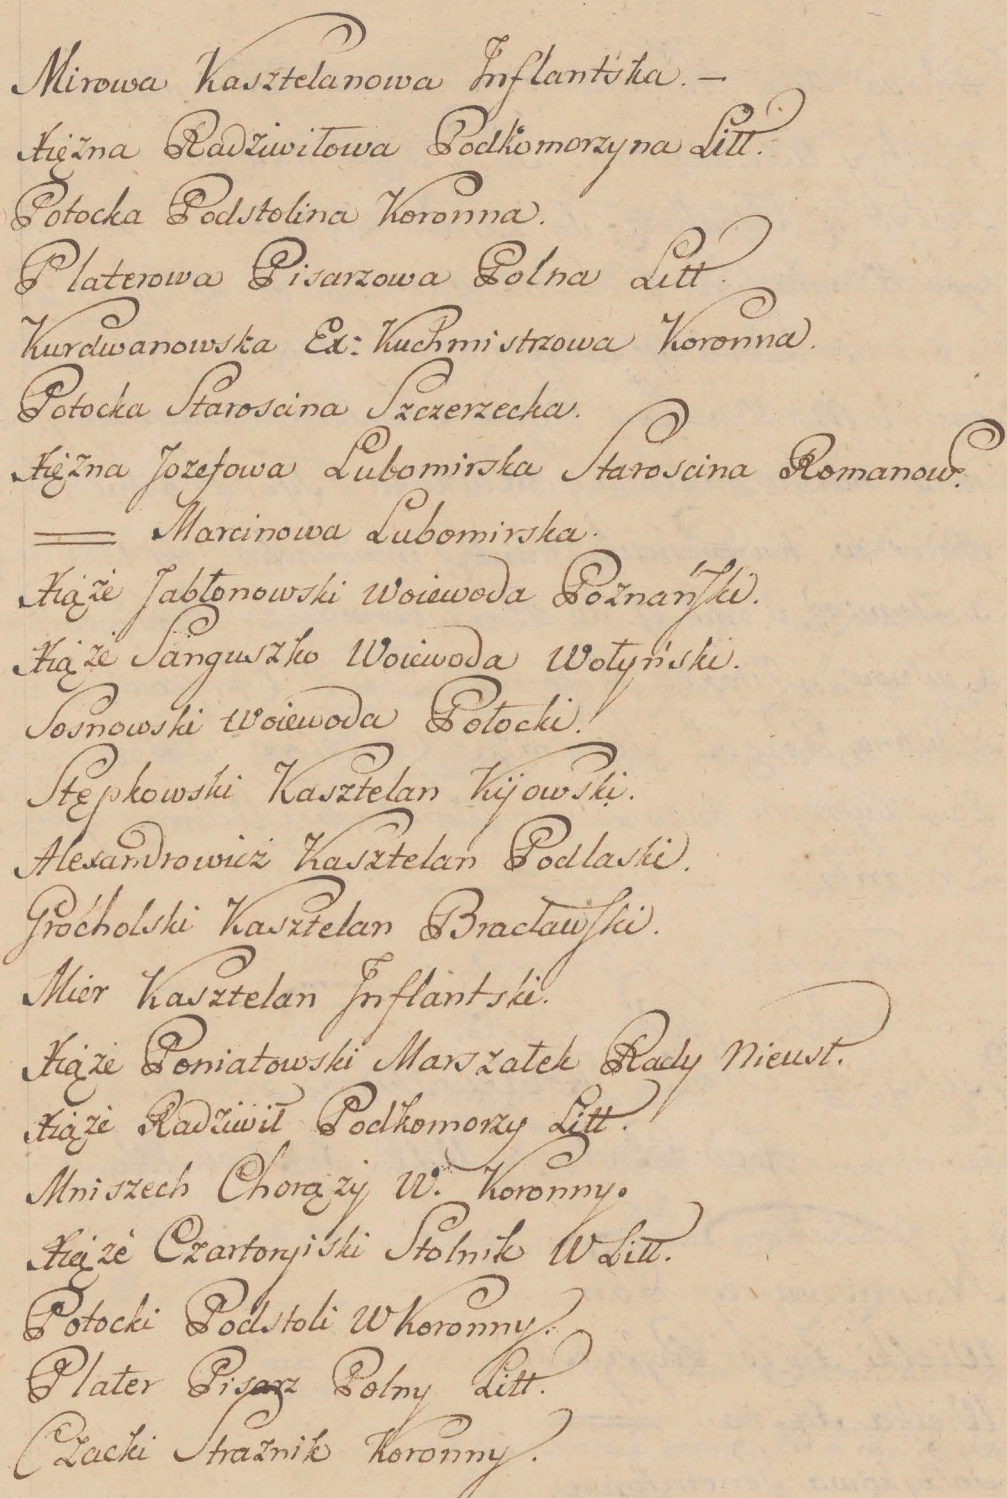 Mirowa Kasztelanowa Inflantska. –
Xiężna Radziwiłowa Podkomorzyna Litt.
Potocka Podstolina Koronna.
Platerowa Pisarzowa Polna Litt.
Kurdwanowska Ex: Kuchmistrzowa Koronna.
Potocka Staroscina Szczerzecka.
Xiężna Jozefowa Lubomirska Staroscina Romanow:
= Marcinowa Lubomirska.
Xiąże Jabłonowski Woiewoda Poznański.
Xiąże Sanguszko Woiewoda Wołyński.
Sosnowski Woiewoda Połocki.
Stępkowski Kasztelan Kijowski.
Alexandrowicz Kasztelan Podlaski.
Grocholski Kasztelan Bracławski.
Mier Kasztelan Inflantski.
Xiąże Poniatowski Marszałek Rady Nieust.
Xiąże Radziwił Podkomorzy Litt.
Mniszech Chorąży W. Koronny.
Xiąże Czartoryiski Stolnik W Litt.
Potocki Podstoli W Koronny.
Plater Pisarz Polny Litt.
Czacki Straznik Koronny.